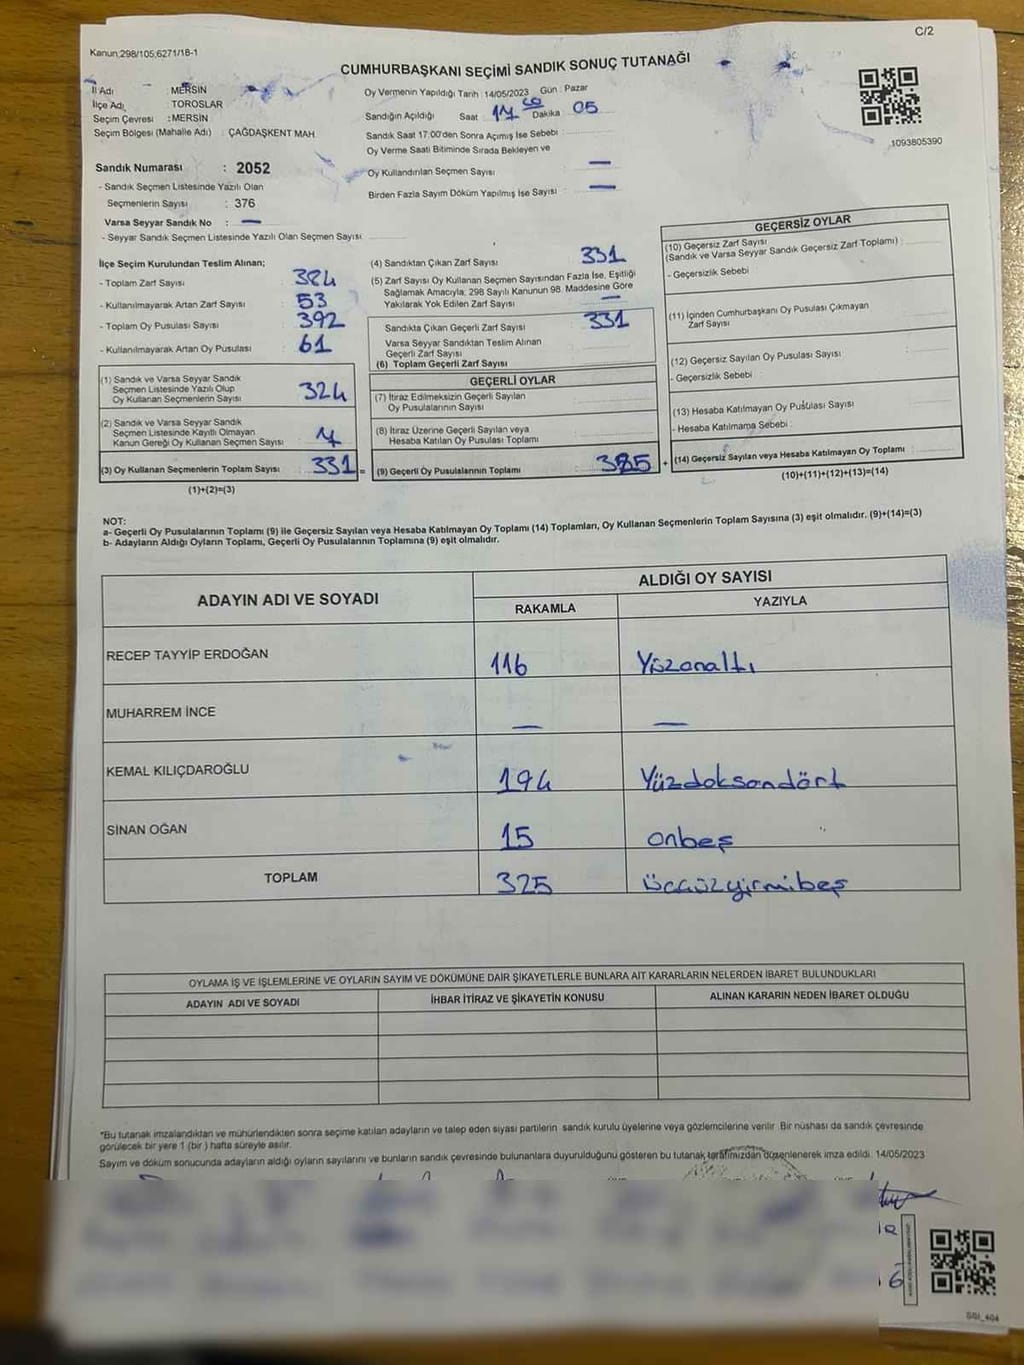 C/2
Kanun:298/105,6271/18-1
CUMHURBAŞKANI SEÇİMİ SANDIK SONUÇ TUTANAĞI
İl Adı : MERSİN
İlçe Adı : TOROSLAR
Seçim Çevresi : MERSİN
Seçim Bölgesi (Mahalle Adı) : ÇAĞDAŞKENT MAH.
Sandık Numarası : 2052
- Sandık Seçmen Listesinde Yazılı Olan
Seçmenlerin Sayısı : 376
Varsa Seyyar Sandık No : —
- Seyyar Sandık Seçmen Listesinde Yazılı Olan Seçmen Sayısı
Oy Vermenin Yapıldığı Tarih : 14/05/2023 Gün : Pazar
Sandığın Açıldığı Saat 17 Dakika 05
Sandık Saat 17:00'den Sonra Açımış İse Sebebi :
Oy Verme Saati Bitiminde Sırada Bekleyen ve
Oy Kullandırılan Seçmen Sayısı : —
Birden Fazla Sayım Döküm Yapılmış İse Sayısı : —
1093805390
İlçe Seçim Kurulundan Teslim Alınan;
- Toplam Zarf Sayısı : 384
- Kullanılmayarak Artan Zarf Sayısı : 53
- Toplam Oy Pusulası Sayısı : 392
- Kullanılmayarak Artan Oy Pusulası : 61
(1) Sandık ve Varsa Seyyar Sandık
Seçmen Listesinde Yazılı Olup
Oy Kullanan Seçmenlerin Sayısı : 324
(2) Sandık ve Varsa Seyyar Sandık
Seçmen Listesinde Kayıtlı Olmayan
Kanun Gereği Oy Kullanan Seçmen Sayısı : 7
(3) Oy Kullanan Seçmenlerin Toplam Sayısı : 331 =
(1)+(2)=(3)
(4) Sandıktan Çıkan Zarf Sayısı : 331
(5) Zarf Sayısı Oy Kullanan Seçmen Sayısından Fazla İse, Eşitliği
Sağlamak Amacıyla, 298 Sayılı Kanunun 98. Maddesine Göre
Yakılarak Yok Edilen Zarf Sayısı : —
Sandıkta Çıkan Geçerli Zarf Sayısı : 331
Varsa Seyyar Sandıktan Teslim Alınan
Geçerli Zarf Sayısı
(6) Toplam Geçerli Zarf Sayısı
GEÇERLİ OYLAR
(7) İtiraz Edilmeksizin Geçerli Sayılan
Oy Pusulalarının Sayısı
(8) İtiraz Üzerine Geçerli Sayılan veya
Hesaba Katılan Oy Pusulası Toplamı
(9) Geçerli Oy Pusulalarının Toplamı : +
GEÇERSİZ OYLAR
(10) Geçersiz Zarf Sayısı
(Sandık ve Varsa Seyyar Sandık Geçersiz Zarf Toplamı) :
- Geçersizlik Sebebi :
(11) İçinden Cumhurbaşkanı Oy Pusulası Çıkmayan
Zarf Sayısı
(12) Geçersiz Sayılan Oy Pusulası Sayısı
- Geçersizlik Sebebi :
(13) Hesaba Katılmayan Oy Pusulası Sayısı
- Hesaba Katılmama Sebebi :
(14) Geçersiz Sayılan veya Hesaba Katılmayan Oy Toplamı :
(10)+(11)+(12)+(13)=(14)
NOT:
a- Geçerli Oy Pusulalarının Toplamı (9) ile Geçersiz Sayılan veya Hesaba Katılmayan Oy Toplamı (14) Toplamları, Oy Kullanan Seçmenlerin Toplam Sayısına (3) eşit olmalıdır. (9)+(14)=(3)
b- Adayların Aldığı Oyların Toplamı, Geçerli Oy Pusulalarının Toplamına (9) eşit olmalıdır.
ADAYIN ADI VE SOYADI ALDIĞI OY SAYISI
RAKAMLA YAZIYLA
RECEP TAYYİP ERDOĞAN 116 Yüzonaltı
MUHARREM İNCE — —
KEMAL KILIÇDAROĞLU 194 Yüzdoksandört
SİNAN OĞAN 15 onbeş
TOPLAM 325 Üçyüzyirmibeş
OYLAMA İŞ VE İŞLEMLERİNE VE OYLARIN SAYIM VE DÖKÜMÜNE DAİR ŞİKAYETLERLE BUNLARA AİT KARARLARIN NELERDEN İBARET BULUNDUKLARI
ADAYIN ADI VE SOYADI İHBAR İTİRAZ VE ŞİKAYETİN KONUSU ALINAN KARARIN NEDEN İBARET OLDUĞU
*Bu tutanak imzalandıktan ve mühürlendikten sonra seçime katılan adayların ve talep eden siyasi partilerin sandık kurulu üyelerine veya gözlemcilerine verilir. Bir nüshası da sandık çevresinde
görülecek bir yere 1 (bir ) hafta süreyle asılır.
Sayım ve döküm sonucunda adayların aldığı oyların sayılarını ve bunların sandık çevresinde bulunanlara duyurulduğunu gösteren bu tutanak tarafımızdan düzenlenerek imza edildi. 14/05/2023
SGI_404